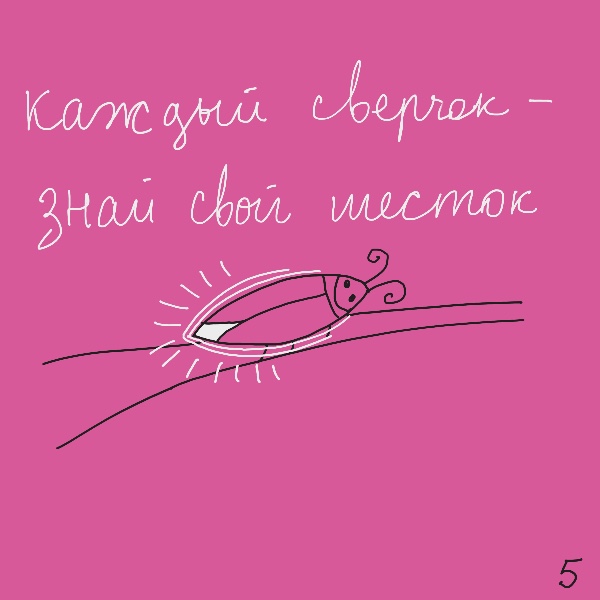 Каждый сверчок -
знай свой шесток
5